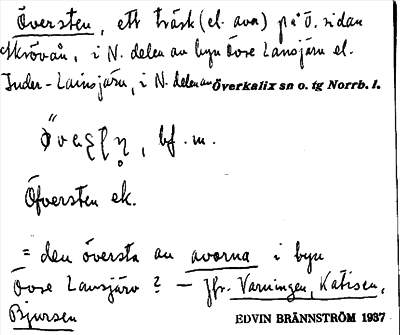 Översten, ett träsk (el. ava) på ö. sidan
Skrövån, i N. delen av byn Övre Lansjärv el.
Inder-Lainsjärv, i N. delen av Överkalix sn o. tg Norrb. l.
bf. m.
Öfversten ek.
= den översta av avorna i byn
Övre Lansjärv? – Jfr. Varningen, Katisen,
Bjursen
EDVIN BRÄNNSTRÖM 1937